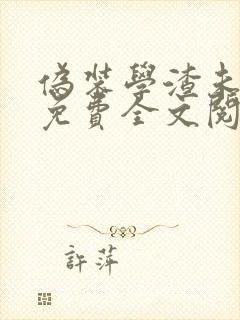 偽裝學渣未
免費全文閱
許萍